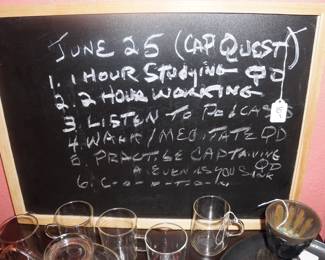 JUNE 25 (CAP QUEST)
1. 1 HOUR STUDYING QD
2. 2 HOUR WORKING
3. LISTEN TO PODCASTS
4. WALK / MEDITATE QD
5. PRACTISE CAPTAINING QD
EVEN AS YOU SINK
6. C-O-O-T-O-N